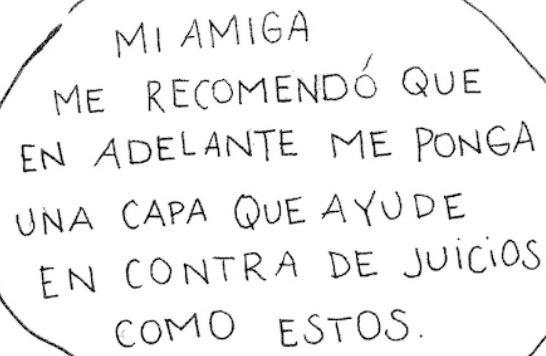 MI AMIGA
ME RECOMENDÓ QUE
EN ADELANTE ME PONGA
UNA CAPA QUE AYUDE
EN CONTRA DE JUICIOS
COMO ESTOS.